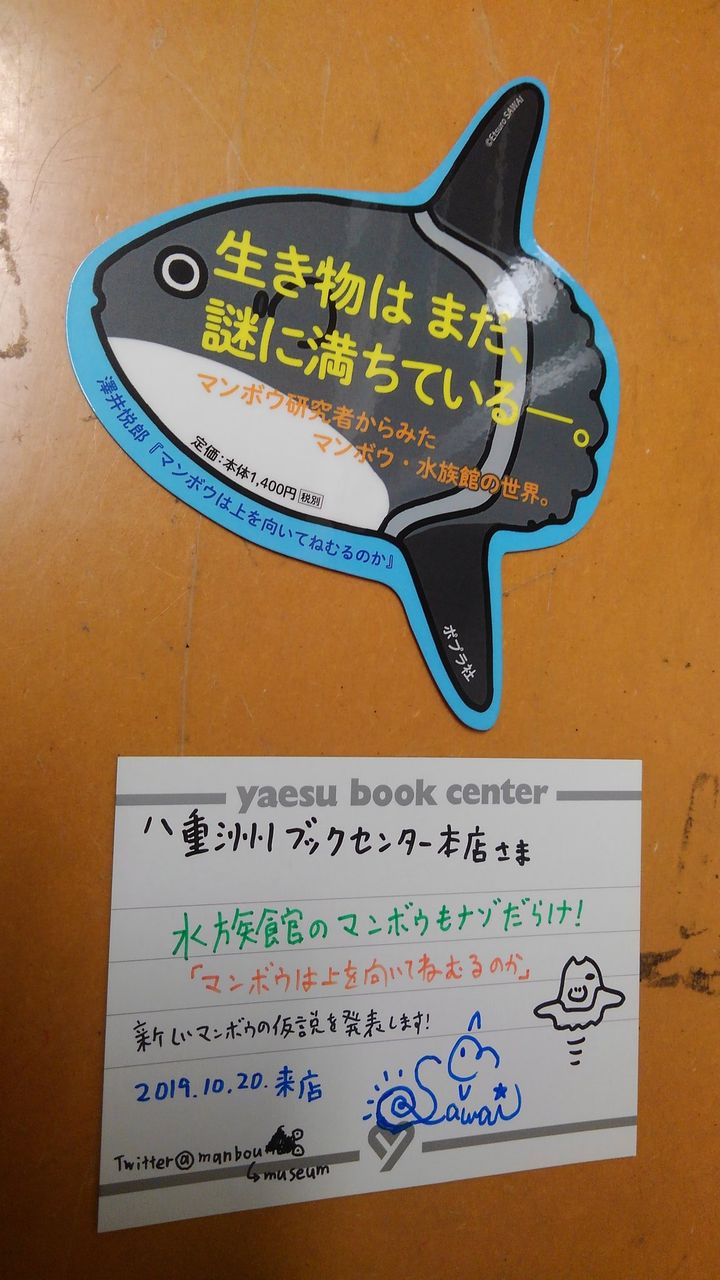 ©Etsuro SAWAI
生き物は まだ、
謎に満ちている―。
マンボウ研究者からみた
マンボウ・水族館の世界。
定価：本体1,400円 税別
澤井悦郎『マンボウは上を向いてねむるのか』
ポプラ社
yaesu book center
八重洲ブックセンター本店さま
水族館のマンボウもナゾだらけ!
「マンボウは上を向いてねむるのか」
新しいマンボウの仮説を発表します!
2019.10.20.来店
Sawai
Twitter@manbou
↳museum